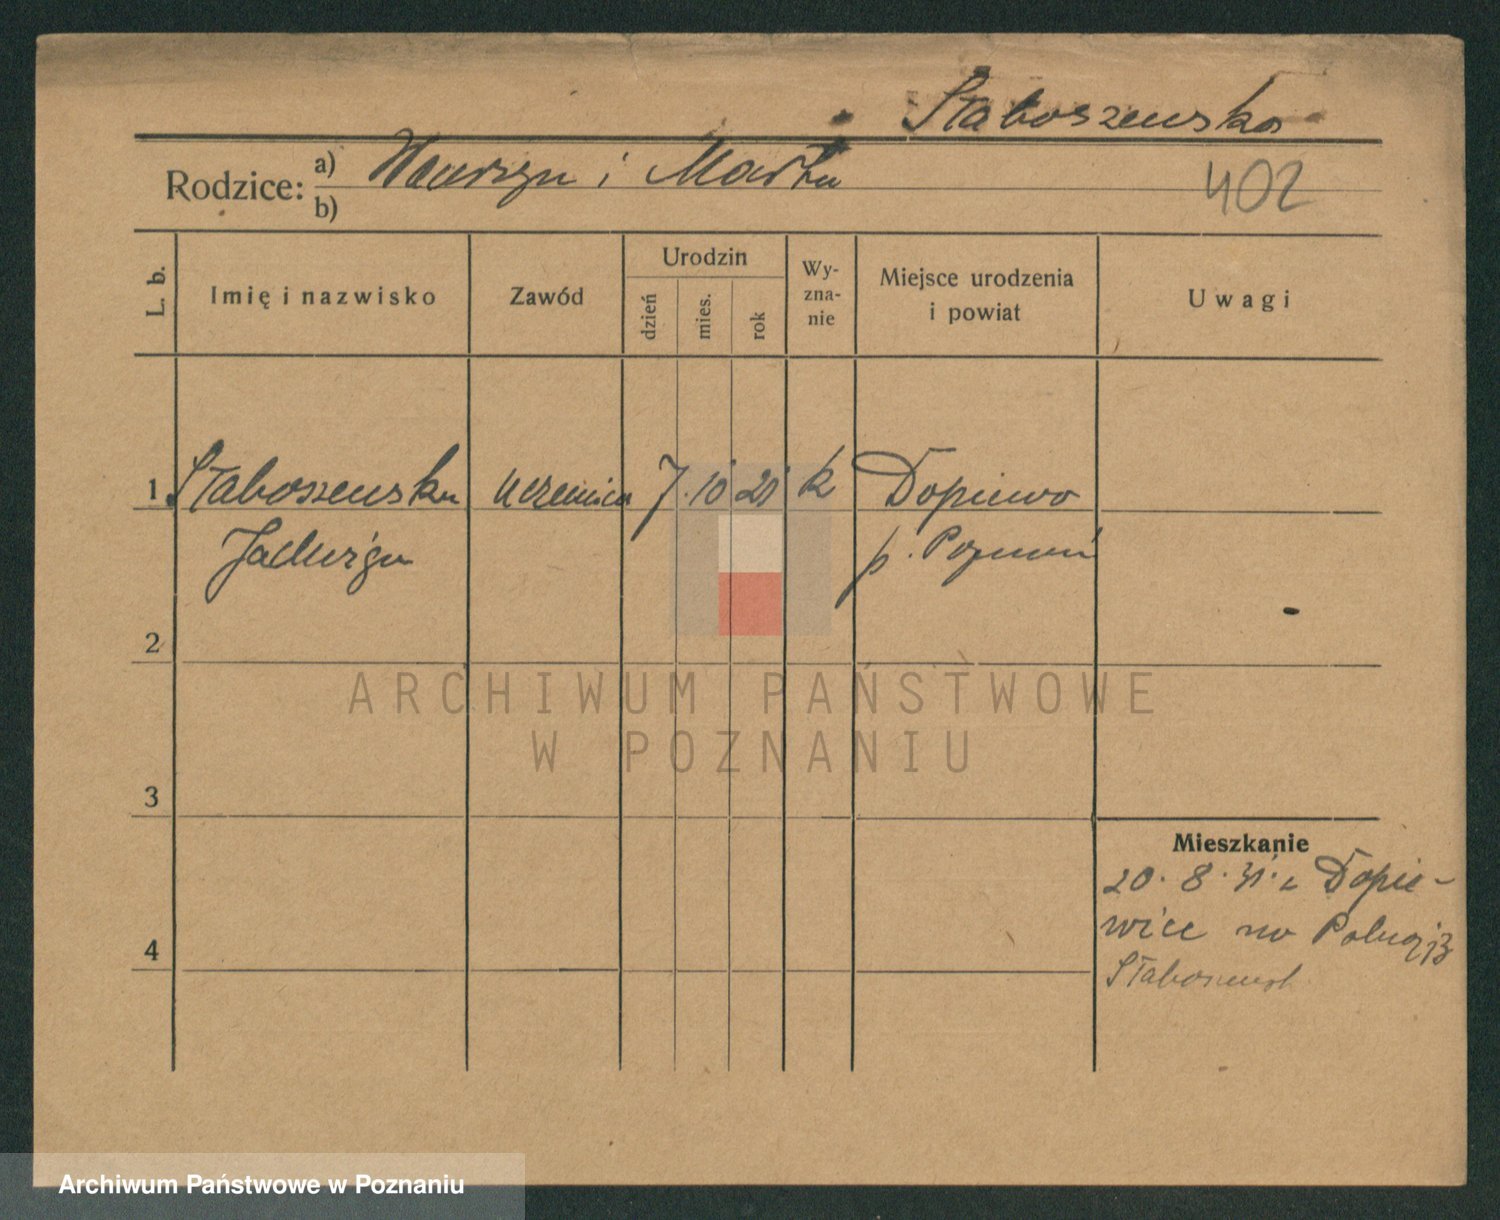 Staboszewska
Rodzice: a) Wawrzyn i Marta
b)
402
L. b.
Imię i nazwisko
Zawód
Urodzin
dzień
mies.
rok
Wy-
zna-
nie
Miejsce urodzenia
i powiat
Uwagi
1 Staboszewska uczennica 7. 10 21 k Dopiewo
Jadwiga p. Poznań
2
3
4
Mieszkanie
20. 8. 31. z Dopie-
wice na Polną 13
Staboszewsk
ARCHIWUM PAŃSTWOWE
W POZNANIU
Archiwum Państwowe w Poznaniu